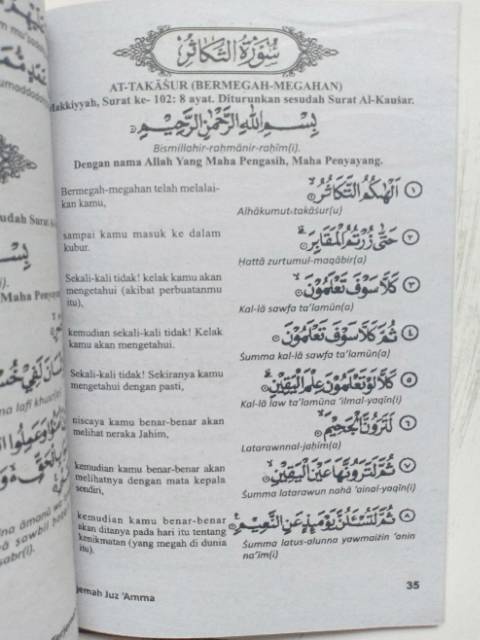 سُورَةُ التَّكَاثُرِ
AT-TAKĀŚUR (BERMEGAH-MEGAHAN)
Makkiyyah, Surat ke- 102: 8 ayat. Diturunkan sesudah Surat Al-Kauśar.
بِسْمِ اللّٰهِ الرَّحْمٰنِ الرَّحِيْمِ
Bismillahir-raḥmānir-raḥīm(i).
Dengan nama Allah Yang Maha Pengasih, Maha Penyayang.
Bermegah-megahan telah melalai-
kan kamu,
اَلْهٰىكُمُ التَّكَاثُرُۙ ١
Alhākumut-takāśur(u)
sampai kamu masuk ke dalam
kubur.
حَتّٰى زُرْتُمُ الْمَقَابِرَۗ ٢
Ḥattā zurtumul-maqābir(a)
Sekali-kali tidak! kelak kamu akan
mengetahui (akibat perbuatanmu
itu),
كَلَّا سَوْفَ تَعْلَمُوْنَۙ ٣
Kal-lā sawfa ta'lamūn(a)
kemudian sekali-kali tidak! Kelak
kamu akan mengetahui.
ثُمَّ كَلَّا سَوْفَ تَعْلَمُوْنَ ٤
Śumma kal-lā sawfa ta'lamūn(a)
Sekali-kali tidak! Sekiranya kamu
mengetahui dengan pasti,
كَلَّا لَوْ تَعْلَمُوْنَ عِلْمَ الْيَقِيْنِۗ ٥
Kal-lā law ta'lamūna 'ilmal-yaqīn(i)
niscaya kamu benar-benar akan
melihat neraka Jahim,
لَتَرَوُنَّ الْجَحِيْمَۙ ٦
Latarawnnal-jaḥim(a)
kemudian kamu benar-benar akan
melihatnya dengan mata kepala
sendiri,
ثُمَّ لَتَرَوُنَّهَا عَيْنَ الْيَقِيْنِۙ ٧
Śumma latarawun nahā 'ainal-yaqīn(i)
kemudian kamu benar-benar
akan ditanya pada hari itu tentang
kenikmatan (yang megah di dunia
itu).
ثُمَّ لَتُسْـَٔلُنَّ يَوْمَىِٕذٍ عَنِ النَّعِيْمِ ٨
Śumma latus-alunna yawmaiżin 'anin
na'īm(i)
35
Juz 'Amma